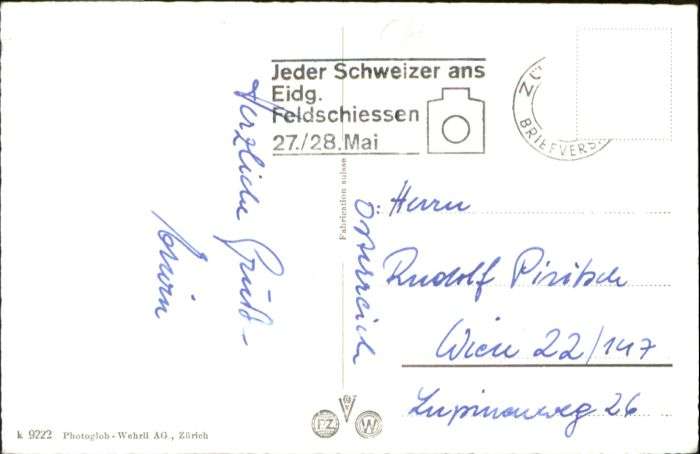 Jeder Schweizer ans
Eidg.
Feldschiessen
27./28. Mai
ZÜ
BRIEFVERS
Herzliche Grüße
Erwin
Fabrication suisse
Österreich
Herrn
Rudolf Piritsch
Wien 22/147
Lupinenweg 26
PZ
W
k 9222 Photoglob-Wehrli AG., Zürich